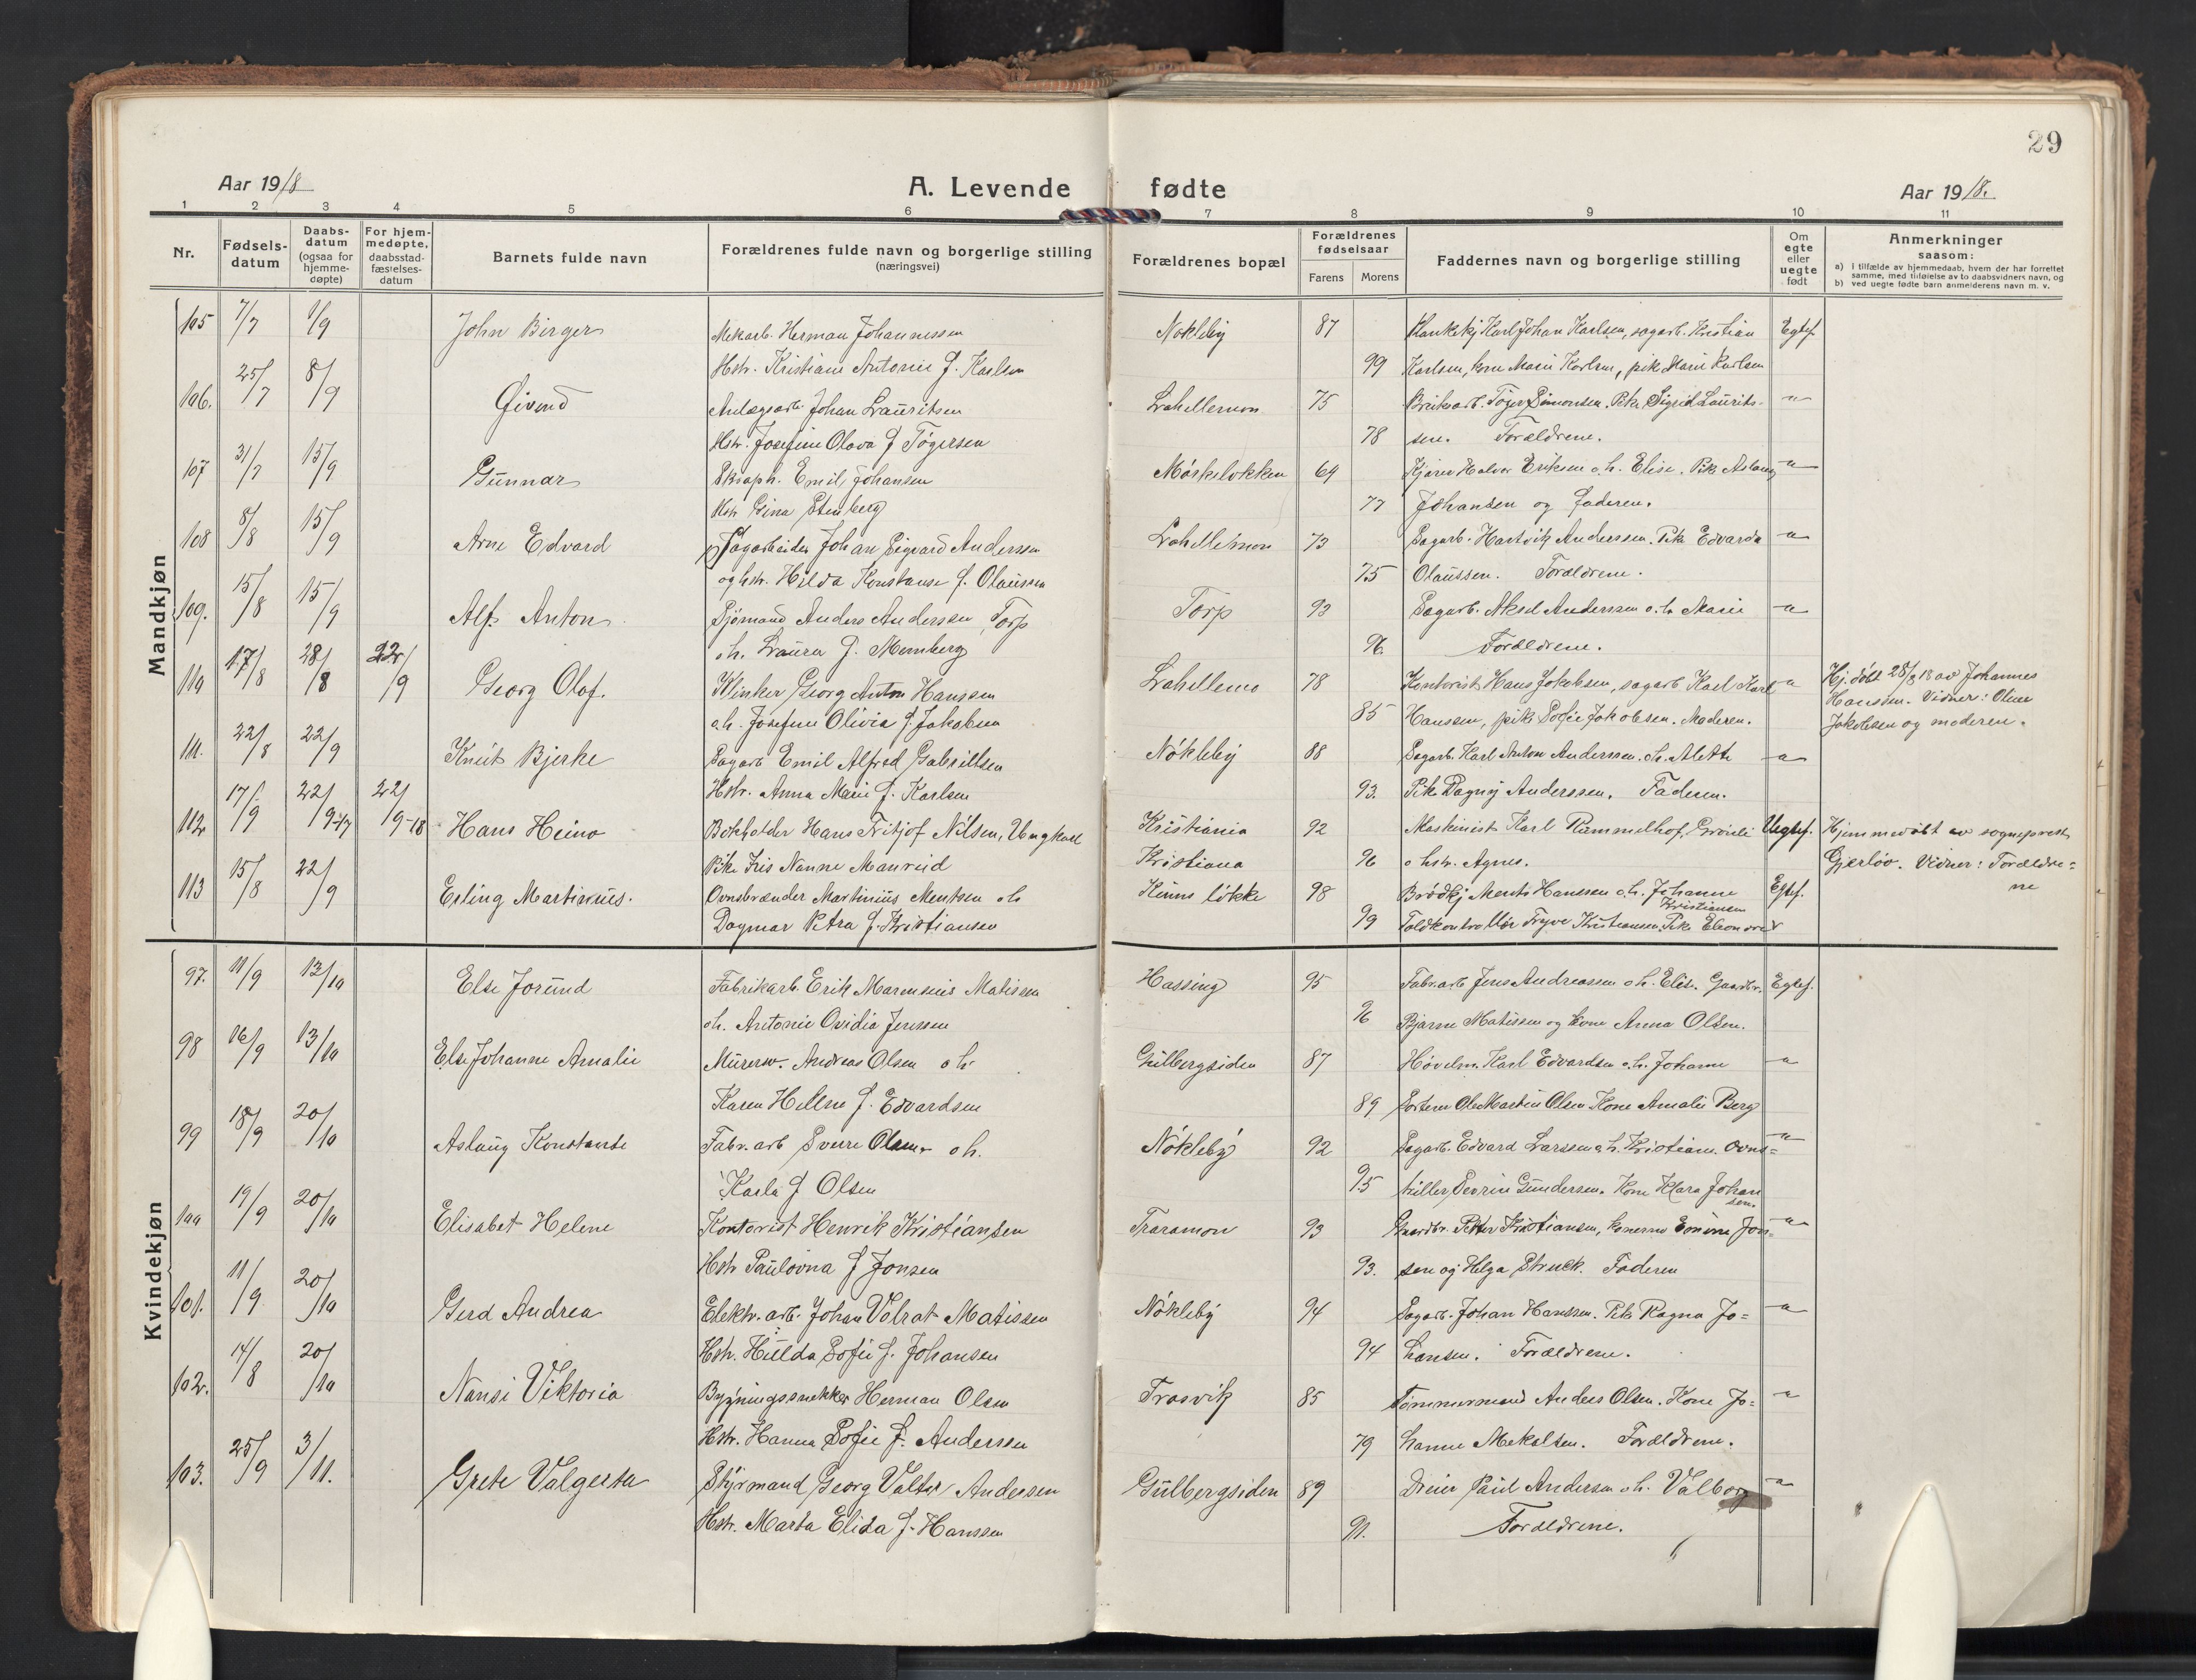 29
Aar 1918
A. Levende fødte
Aar 1918.
1 2 3 4 5 6 7 8 9 10 11
Nr.
Fødsels-
datum
Daabs-
datum
(ogsaa for
hjemme-
døpte)
For hjem-
medøpte,
daabsstad-
fæstelses-
datum
Barnets fulde navn
Forældrenes fulde navn og borgerlige stilling
(næringsvei)
Forældrenes bopæl
Forældrenes
fødselsaar
Farens Morens
Faddernes navn og borgerlige stilling
Om
egte
eller
uegte
født
Anmerkninger
saasom:
a) i tilfælde av hjemmedaab, hvem der har forrettet
samme, med tilføielse av to daabsvidners navn, og
b) ved uegte fødte barn anmelderens navn m. v.
Mandkjøn
105 7/7 1/9 John Birger Mekarb. Herman Johannessen Nokleby 87 Karl Johan Karlsen, sagarb. Kristian Egtef.
Hstr. Kristiane Antonie f. Karlsen 99 Karlsen, kone Marie Karlsen, pike Marie Karlsen
106. 25/7 8/9 Øivind Anlægsarb. Johan Lauritsen Lahellemon 75 Bruksarb. Tøger Simonsen. Pike Sigrid Laurits- — " —
Hstr. Josefine Olava f Tøgersen 78 sen. Forældrene.
107 31/7 15/9 Gunnar Skraph. Emil Johansen Møskeløkken 64 Kjører Halvor Eriksen o. h. Elise. Pike Aslaug — " —
Hstr Gina Stenberg 77 Johansen og faderen.
108 8/8 15/9 Arne Edvard Sagarbeider Johan Sigvard Anderssen Lahellemon 73 Sagarb. Hartvik Anderssen. Pike Edvarda — " —
og hstr. Hilda Konstanse f. Olaussen 75 Olaussen. Forældrene.
109. 15/8 15/9 Alf Anton Sjømand Anders Anderssen, Torp Torp 93 Sagarb. Aksel Anderssen o. h. Marie — " —
o h. Laura f. Memberg 96. Forældrene.
110 17/8 28/8 22/9 Georg Olaf. Klinker Georg Anton Hanssen Lahellemo 78 Kontorist Hans Jakobsen, sagarb Karl Karl — " — Hj. døbt 28/8 18 av Johannes
o. h. Josefine Olivia f. Jakobsen 85 Hanssen, pike Sofie Jakobsen. Moderen. Hanssen. Vidner: Oline
Jakobsen og moderen.
111. 22/8 22/9 Knut Bjerke Sagarb Emil Alfred Gabrielsen Nökleby 88 Sagarb. Karl Anton Anderssen. o. h. Alette — " —
Hstr. Anna Marie f. Karlsen 93. Pike Dagny Anderssen. Faderen.
112 17/9 22/9-17 22/9-18 Hans Heino Bokholder Hans Fritjof Nilsen, Ungkarl Kristiania 92 Maskinist Karl Rummelhof, Grönli Uegtef. Hjemmedøbt av sogneprest
Pike Iris Nanne Manreid Kristiana 96 o hstr. Agnes. Gjerløv. Vidner: Forældre=
ne
113 15/8 22/9 Erling Martinius. Ovnsbrænder Martinius Mentsen o h Kinns løkke 98 Brødkj Ments Hanssen o. h. Johanne Egtef.
Dagmar Petra f. Kristiansen 99 Toldkontrollør Trygve Kristiansen, Pike Eleonore
Kristiansen
Kvindekjøn
97. 11/9 13/10 Else Jorund Fabrikarb. Erik Marensius Matissen Hassing 95 Fabr.arb Jens Andreassen o h. Elise. Gaardbr. Egtef.
o h. Antonie Ovidia Jenssen 96 Bjarne Matissen og kone Anna Olsen.
98 16/9 13/10 Else Johanne Amalie Murerm. Andreas Olsen o h Gulbergsiden 87 Høvelm. Karl Edvardsen o. h. Johanne — " —
Karen Hellene f. Edvardsen 89 Sorterer Ole Martin Olsen Kone Amalie Berg
99 18/9 20/10 Aslaug Konstanse Fabr. arb Sverre Olsen o h. Nökleby 92 Sagarb. Edvard Larssen o h. Kristiane. Ovns= — " —
Karla f Olsen 95 Severin Gundersen. Kone Klara Johan
sen.
100 19/9 20/10 Elisabet Helene Kontorist Henrik Kristiansen Traramon 93 Gaardbr. Petter Kristiansen, konerne Emine Jon= — " —
Hstr Paulovna f Jonsen 93. sen og Helga Struck. Faderen
101. 11/9 20/10 Gerd Andrea Elektr. arb. Johan Volrat Matissen Nökleby 94 Sagarb. Johan Hanssen. Pike Ragna Jo= — " —
Hstr. Hulda Sofie f. Johansen 94 hansen. Forældrene.
102. 14/8 20/10 Nansi Viktoria Bygningssnekker Herman Olsen Trosvik 85 Tømmermand Anders Olsen. Kone Jo= — " —
Hstr. Hanna Sofie f. Andersen 79 hanne Mekalsen. Forældrene.
103. 25/9 3/11. Grete Valgerta Styrmand Georg Valter Andersen Gulbergsiden 89 Dreier Paul Andersen o h. Valborg — " —
Hstr. Marta Elida f. Hanssen 91. Forældrene.